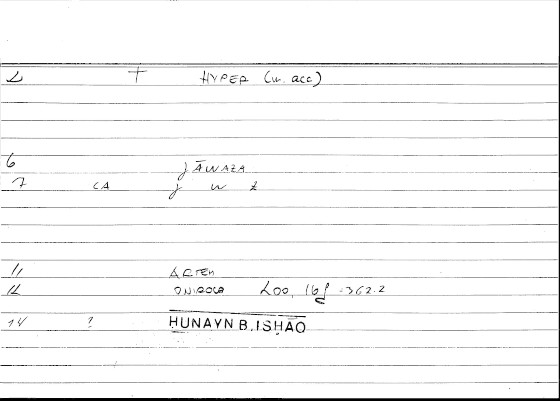 2 + HYPER (w. acc)
6 jĀWAZA
7 CA j w z
11 ARTEM
12 ONIROCR 200, 16f -362.2
14 ? HUNAYN B. ISHAO